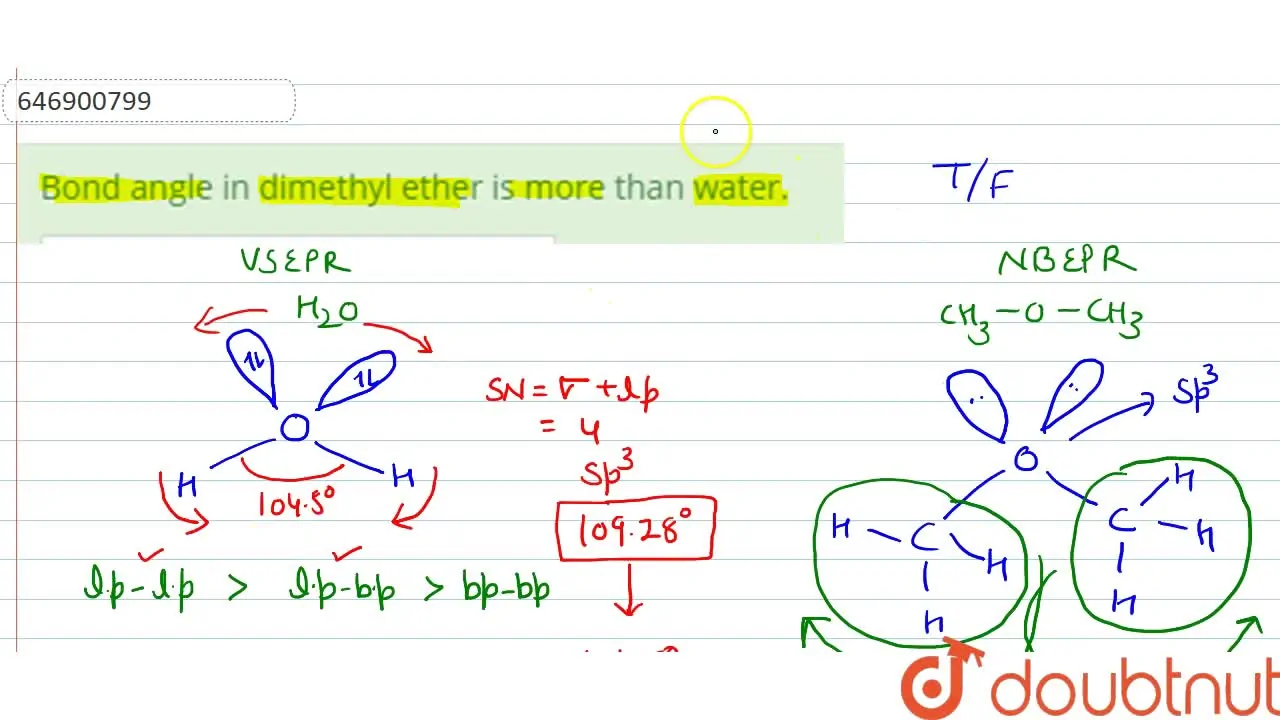 646900799
Bond angle in dimethyl ether is more than water.
T/F
VSEPR
H2O
1L 1L
O
H H
104.5°
l.p-l.p > l.p-b.p > bp-bp
SN = σ + lp
= 4
Sp³
109.28°
NBEPR
CH3-O-CH3
Sp³
O
H C H
H
C H
H
H
doubtnut